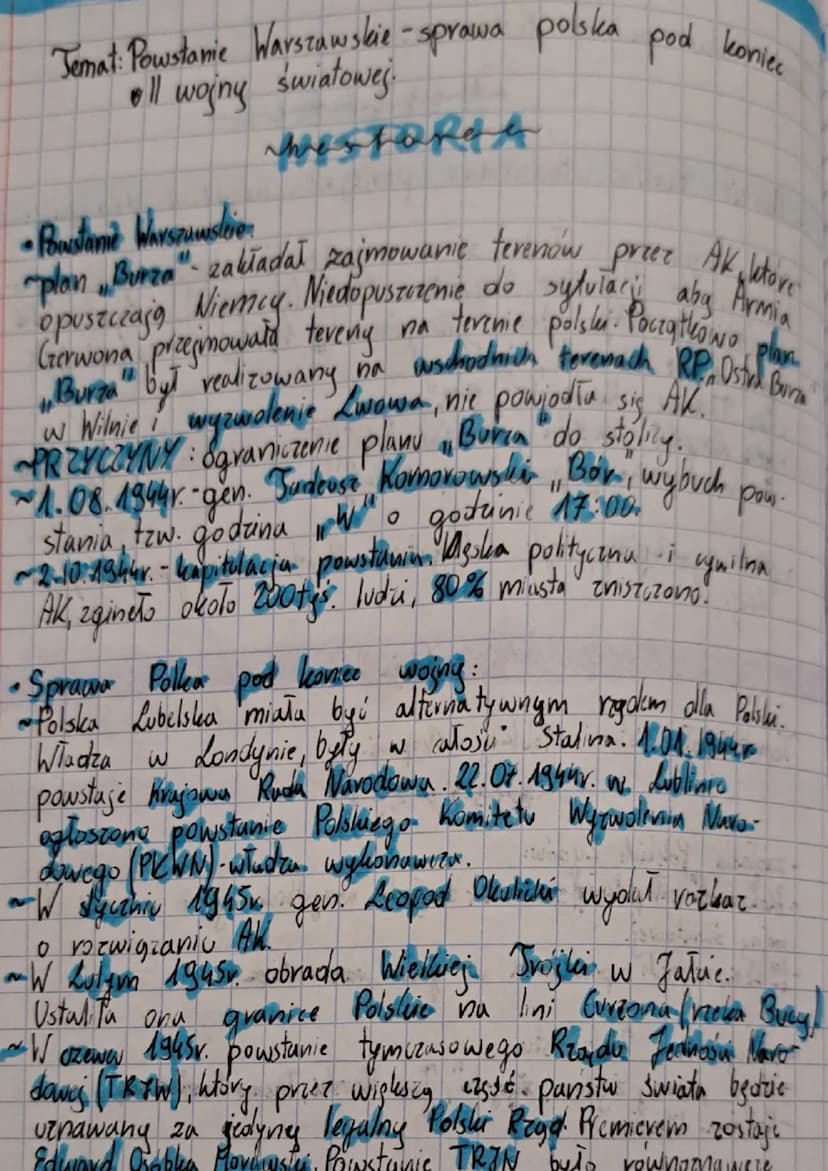 Temat: Powstanie Warszawskie - sprawa polska pod koniec
II wojny światowej.
HISTORIA
• Powstanie Warszawskie:
~plan „Burza" - zakładał zajmowanie terenów przez AK, które
opuszczają Niemcy. Niedopuszczenie do sytulacji aby Armia
Czerwona przejmowała tereny na terenie polski. Początkowo plan
„Burza" był realizowany na wschodnich terenach RP. „Ostra Burza
w Wilnie i wyzwolenie Lwowa, nie powiodła się AK.
~PRZYCZYNY: ograniczenie planu „Burza" do stolicy.
~1.08.1944r. - gen. Tadeusz Komorowski „Bór", wybuch pow-
stania, tzw. godzina „W" o godzinie 17:00.
~2.10.1944r. - kapitulacja powstania. Klęska polityczna i cywilna
AK, zginęło około 200tyś. ludzi, 80% miasta zniszczono.
• Sprawa Polka pod koniec wojny:
~Polska Lubelska miała być alternatywnym rządem dla Polski.
Władza w Londynie, były w całości Stalina. 1.01.1944r
powstaje Krajowa Rada Narodowa. 22.07.1944r. w Lublinie
ogłoszono powstanie Polskiego Komitetu Wyzwolenia Naro-
dowego (PKWN) - władza wykonawcza.
~W styczniu 1945r. gen. Leopod Okulicki wydał rozkaz
o rozwiązaniu AK.
~W Lutym 1945r. obrada Wielkiej Trójki w Jałcie.
Ustaliła ona granice Polskie na lini Curzona (rzeka Bug)
~W czewcu 1945r. powstanie tymczasowego Rządu Jedności Naro-
dowej (TRJN), który przez większą część państw świata będzie
uznawany za jedyny legalny Polski Rząd. Premierem zostaje
Edward Osóbka Morawski. Powstanie TRJN było równoznaczne